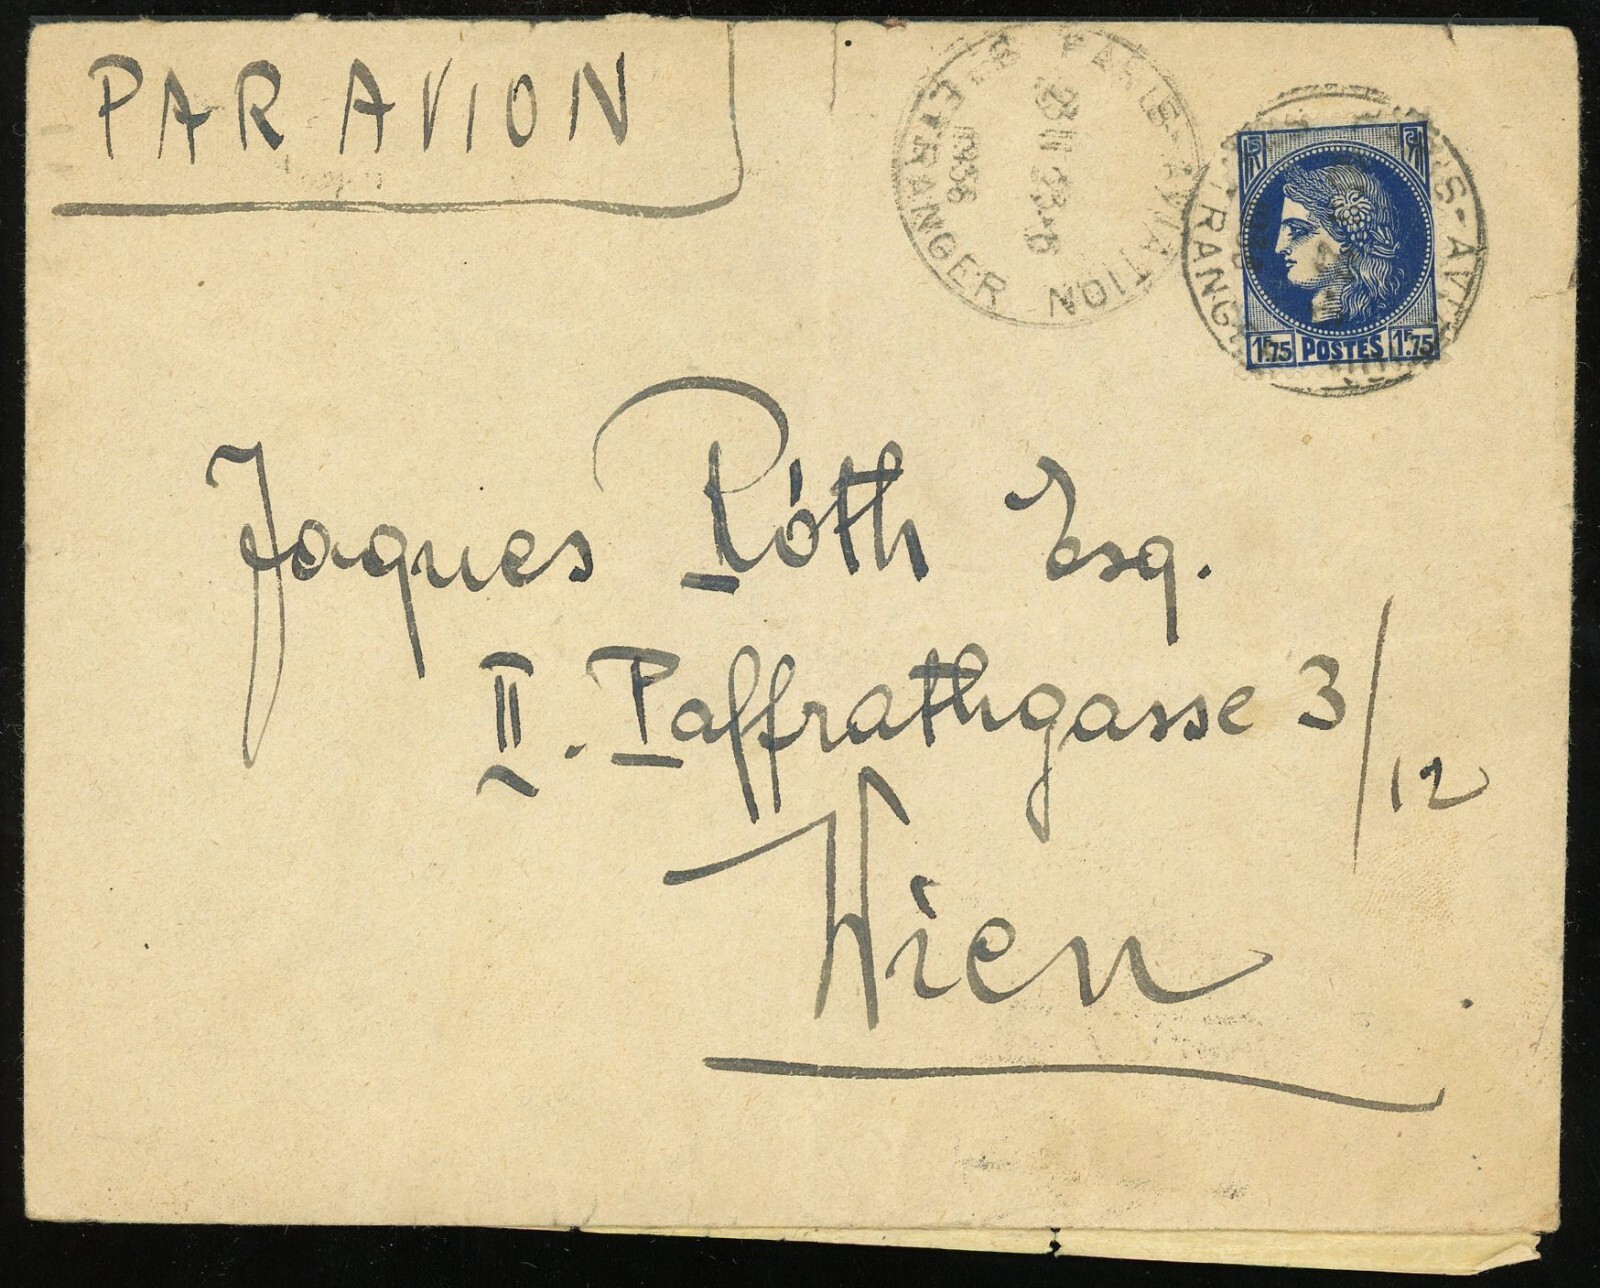 PAR AVION
PARIS-AVIATION
ETRANGER
RF
1F.75 POSTES 1F.75
Jaques Róth Esq.
II. Paffrathgasse 3/12
Wien